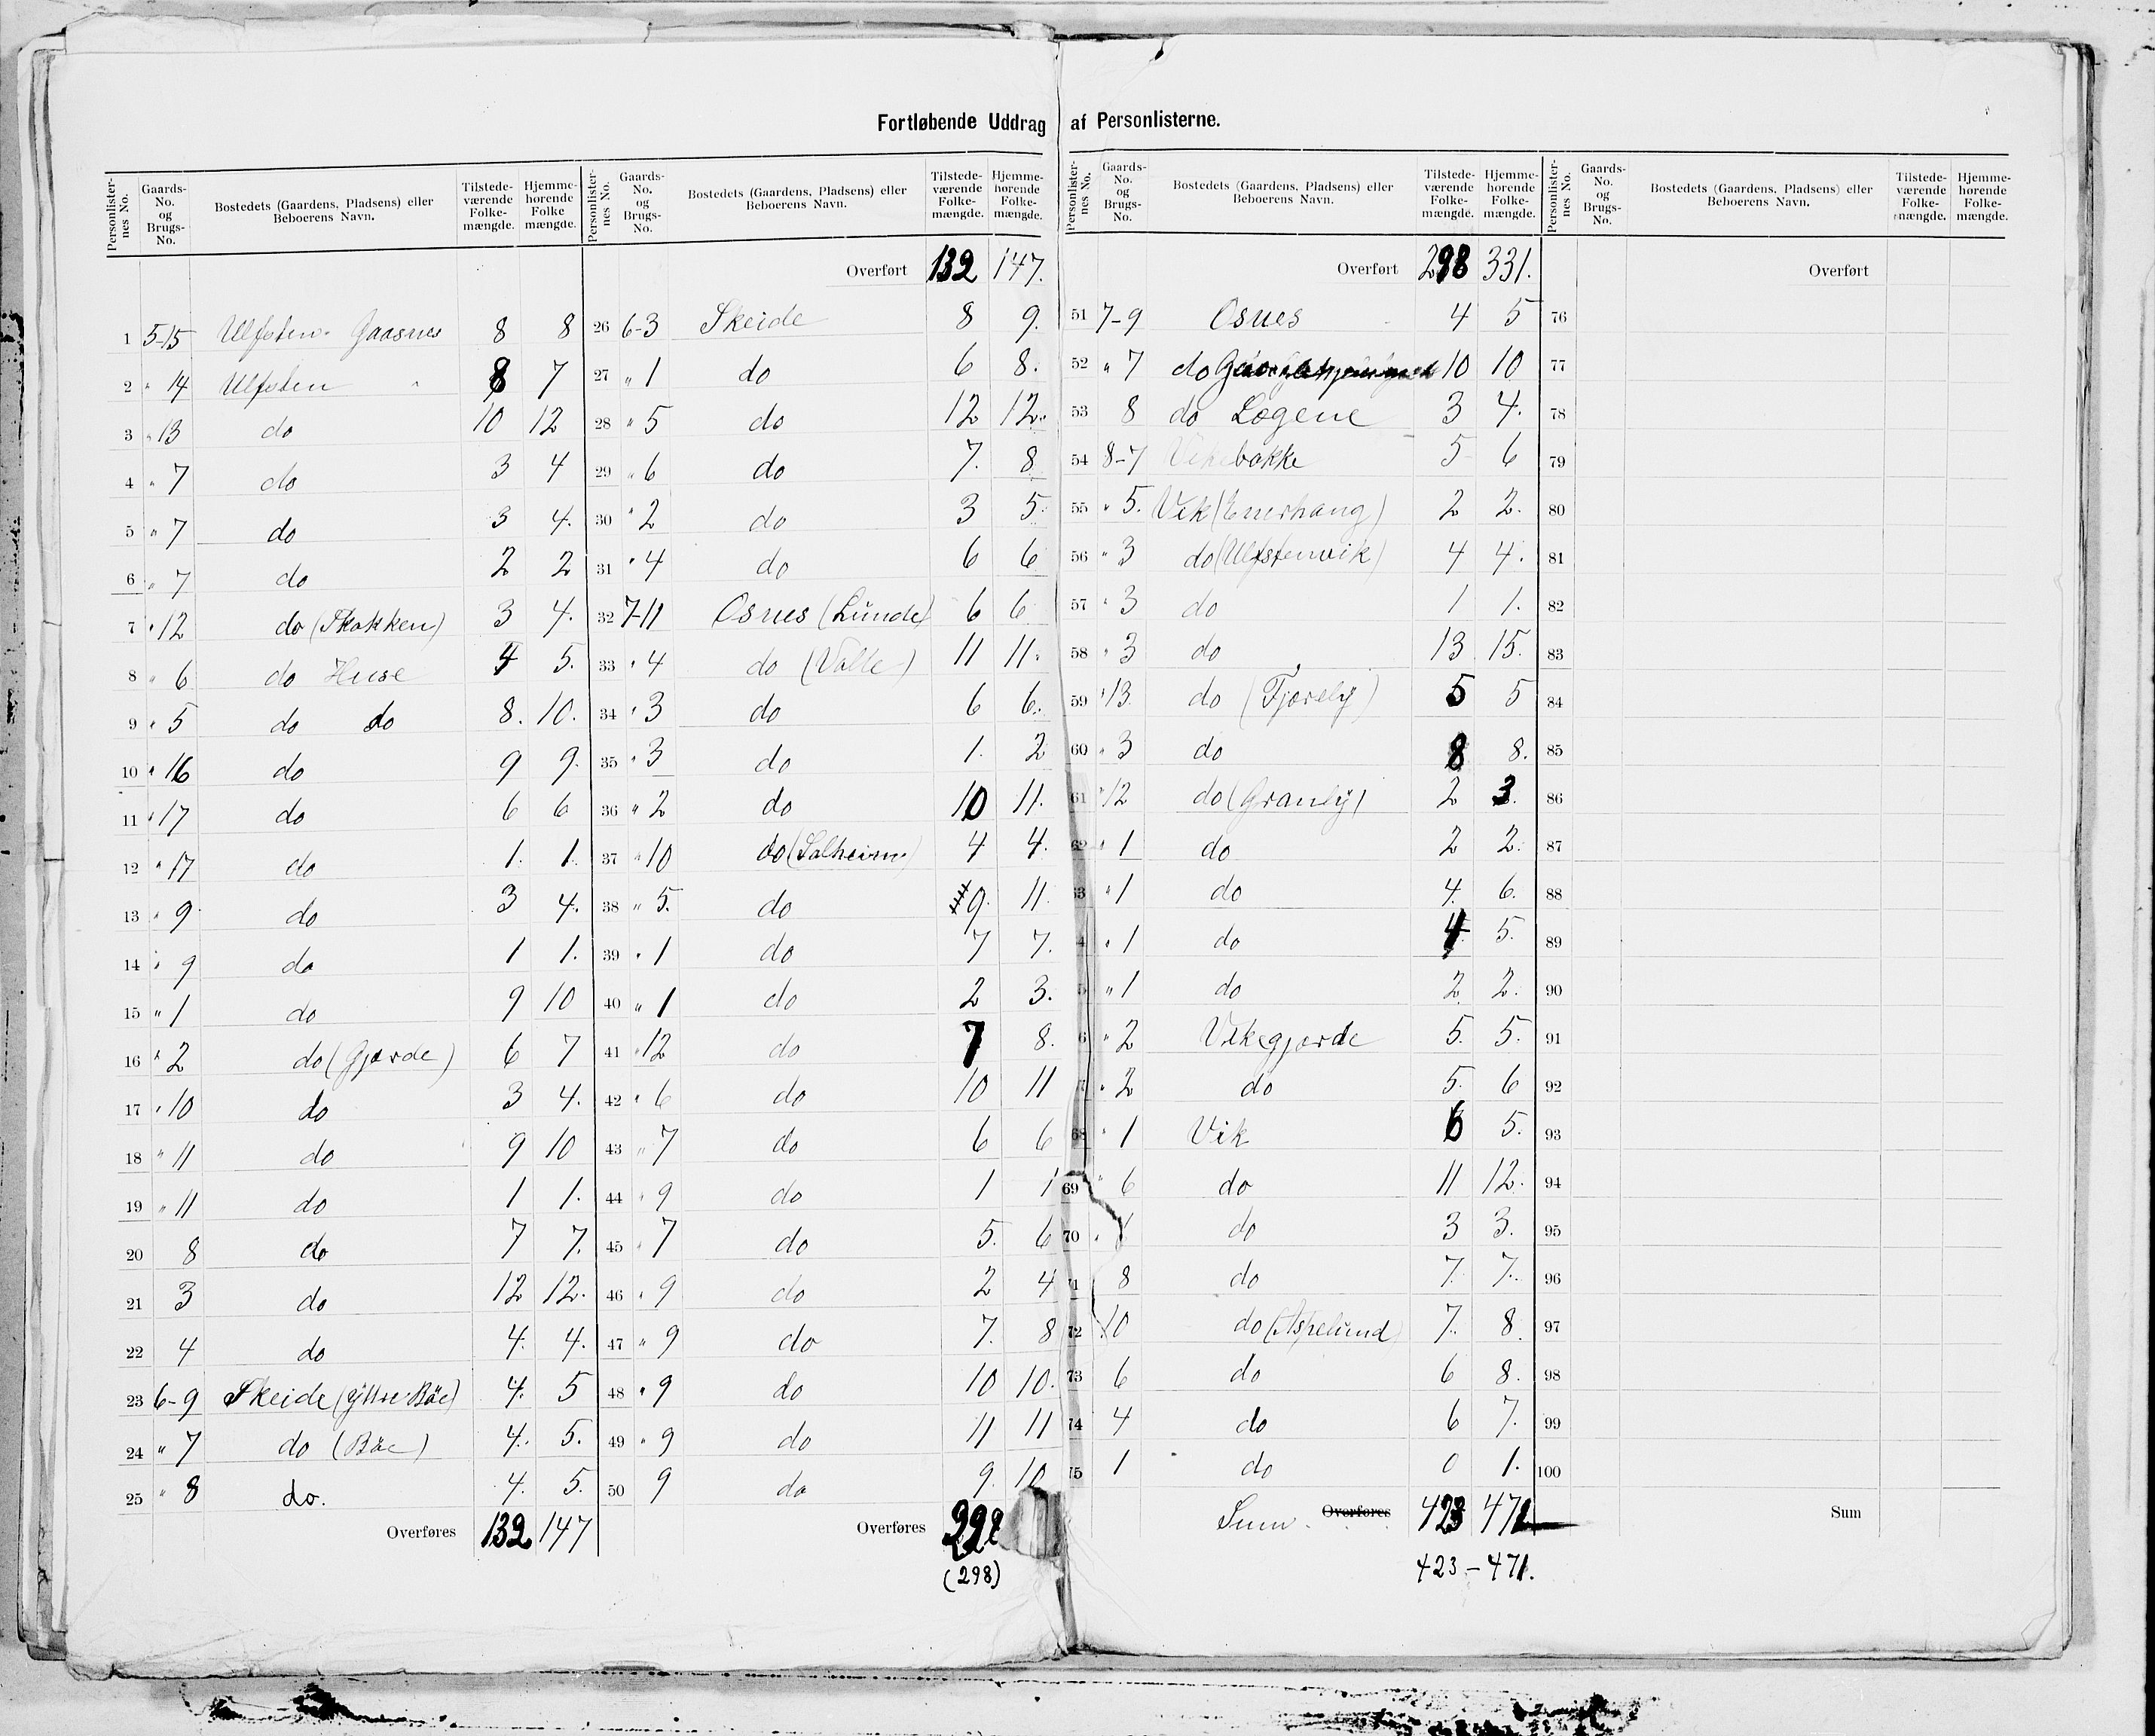 Fortløbende Uddrag af Personlisterne.
Personlister-nes No. Gaards-No. og Brugs-No. Bostedets (Gaardens, Pladsens) eller Beboerens Navn. Tilstede-værende Folke-mængde. Hjemme-hørende Folke mængde.
1 5-15 Ulfsten Gaasnes 8 8
2 " 14 Ulfsten " 8 7
3 " 13 do 10 12
4 " 7 do 3 4
5 " 7 do 3 4.
6 " 7 do 2 2
7 " 12 do (Skakken) 3 4.
8 " 6 do Huse 4 5.
9 " 5 do do 8. 10.
10 " 16 do 9 9.
11 " 17 do 6 6
12 " 17 do 1. 1.
13 " 9 do 3 4.
14 " 9 do 1 1.
15 " 1 do 9 10
16 " 2 do (Gjærde) 6 7
17 " 10 do 3 4.
18 " 11 do 9 10
19 " 11 do 1 1.
20 8 do 7 7.
21 3 do 12 12.
22 4 do 4. 4.
23 6-9 Skeide (Yttre Böe) 4. 5
24 " 7 do (Böe) 4. 5.
25 " 8 do. 4. 5.
Overføres 132 147
Personlister-nes No. Gaards-No. og Brugs-No. Bostedets (Gaardens, Pladsens) eller Beboerens Navn. Tilstede-værende Folke-mængde. Hjemme-hørende Folke-mængde.
Overført 132 147.
26 6-3 Skeide 8 9.
27 " 1 do 6 8.
28 " 5 do 12 12.
29 " 6 do 7. 8
30 " 2 do 3 5.
31 " 4 do 6 6
32 7-11 Osnes (Lunde) 6 6
33 " 4 do (Valle) 11 11.
34 " 3 do 6 6.
35 " 3 do 1. 2
36 " 2 do 10 11.
37 " 10 do (Solheim) 4 4.
38 " 5. do 9. 11.
39 " 1 do 7 7.
40 " 1 do 2 3.
41 " 12 do 7 8.
42 " 6 do 10 11
43 " 7 do 6 6
44 " 9 do 1 1
45 " 7 do 5. 6
46 " 9 do 2 4
47 " 9 do 7. 8
48 " 9 do 10 10.
49 " 9 do 11 11
50 9 do 9. 10
Overføres 298
(298)
Personlister-nes No. Gaards-No. og Brugs-No. Bostedets (Gaardens, Pladsens) eller Beboerens Navn. Tilstede-værende Folke-mængde. Hjemme-hørende Folke-mængde.
Overført 298 331.
51 7-9 Osnes 4 5
52 " 7 do 10 10
53 8 do Løgene 3 4.
54 8-7 Vikebakke 5 6
55 " 5. Vik 2 2.
56 " 3 do (Ulfstenvik) 4 4.
57 " 3 do 1 1.
58 " 3 do 13 15.
59 " 13 do (Fjøreby) 5 5
60 " 3 do 8 8.
61 " 12 do (Granly) 2 3.
62 " 1 do 2 2.
63 " 1 do 4. 6.
4 " 1 do 4. 5.
5 " 1 do 2. 2.
6 " 2 Vikegjærde 5. 5.
7 " 2 do 5. 6
68 " 1 Vik 6 5.
69 " 6 do 11 12.
70 " do 3 3.
71 8 do 7. 7.
72 10 do (Aspelund) 7. 8.
73 6 do 6 8.
74 4 do 6 7.
75 1 do 0 1.
Sum. Overføres 423 471
423 - 471.
Personlister-nes No. Gaards-No. og Brugs-No. Bostedets (Gaardens, Pladsens) eller Beboerens Navn. Tilstede-værende Folke-mængde. Hjemme-hørende Folke-mængde.
Overført
76
77
78
79
80
81
82
83
84
85
86
87
88
89
90
91
92
93
94
95
96
97
98
99
100
Sum